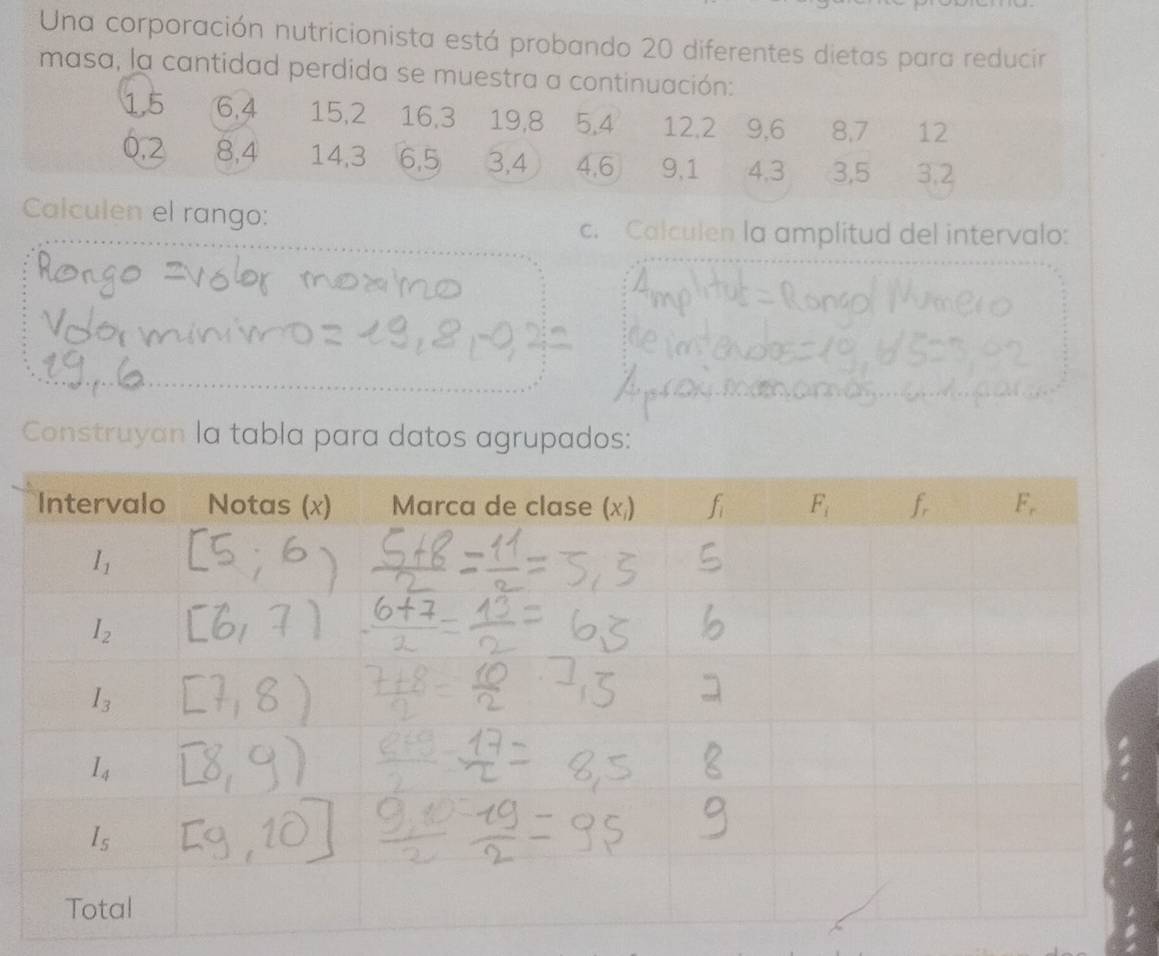 Una corporación nutricionista está probando 20 diferentes dietas para reducir
masa, la cantidad perdida se muestra a continuación:
1,5 6,4 15,2 16,3 19,8 5,4 12,2 9,6 8,7 12
0,2 8,4 14,3 6,5 3,4 4,6 9,1 4,3 3,5 3,2
Calculen el rango:
c. Calculen la amplitud del intervalo:
Rango = valor maximo
Valor minimo = 19,8,-0,2=
19,6
Amplitut = Rango/ Numero
de = 19,6/5=3,92
Construyan la tabla para datos agrupados:
Intervalo Notas (x) Marca de clase (xᵢ) fᵢ Fᵢ fᵣ Fᵣ
I₁ [5; 6) 5+8/2 = 11/2 = 5,5 5
I₂ [6, 7) 6+7/2 = 13/2 = 6,5 6
I₃ [7, 8) 7+8/2 = 10/2 7,5 7
I₄ [8, 9) 8+9/2 = 17/2 = 8,5 8
I₅ [9, 10] 9,10/2 = 19/2 = 9,5 9
Total